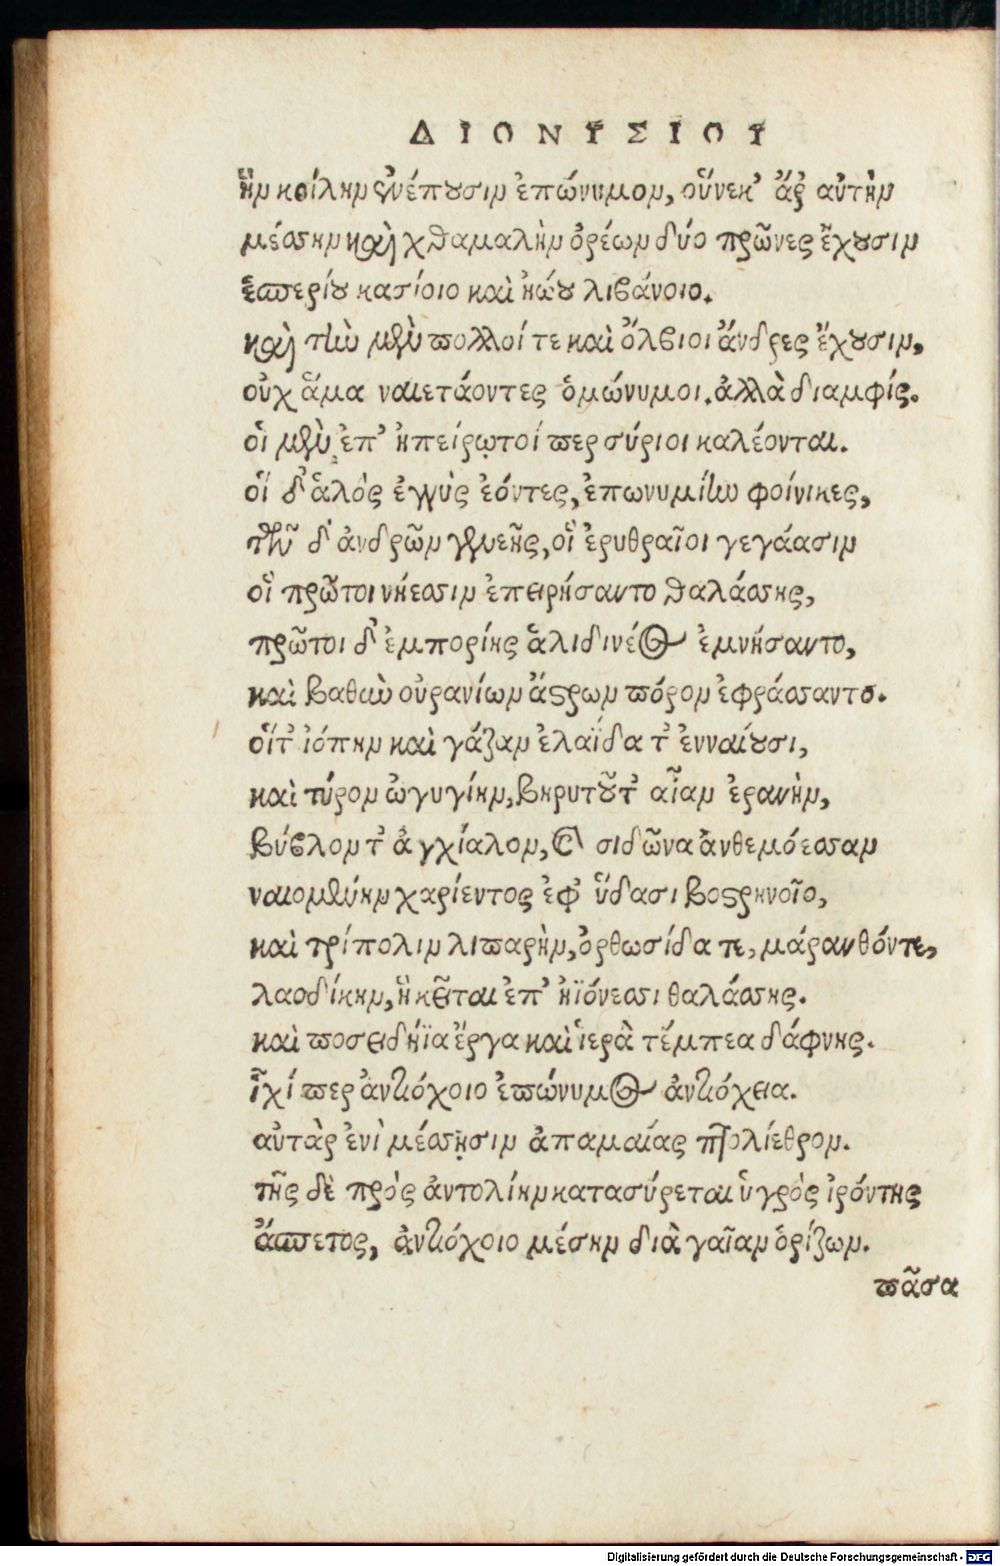 ΔΙΟΝΥΣΙΟΥ
ἣν κοίλην ἐνέπουσιν ἐπώνυμον, οὕνεκ' ἄρ αὐτὴν
μέσσην καὶ χθαμαλὴν ὀρέων δύο πρῶνες ἔχουσιν
ἑσπερίου κασίοιο καὶ ἠώου λιβάνοιο.
καὶ τὴν μὲν πολλοί τε καὶ ὄλβιοι ἄνδρες ἔχουσιν,
οὐχ ἅμα ναιετάοντες ὁμώνυμοι. ἀλλὰ διαμφίς.
οἱ μὲν ἐπ' ἠπείρῳ τοί περ σύριοι καλέονται.
οἵ δ' ἁλὸς ἐγγὺς ἐόντες, ἐπωνυμίην φοίνικες,
τῶν δ' ἀνδρῶν γενεῆς, οἳ ἐρυθραῖοι γεγάασιν
οἳ πρῶτοι νήεσσιν ἐπειρήσαντο θαλάσσης,
πρῶτοι δ' ἐμπορίης ἁλιδινέος ἐμνήσαντο,
καὶ βαθὺν οὐρανίων ἄστρων πόρον ἐφράσσαντο.
οἵτ' ἰόπην καὶ γάζαν ἐλαΐδα τ' ἐνναίουσι,
καὶ τύρον ὠγυγίην, βηρυτοῦ τ' αἶαν ἐρανὴν,
βύβλον τ' ἀγχίαλον, καὶ σιδῶνα ἀνθεμόεσσαν
ναιομένην χαρίεντος ἐφ' ὕδασι βοστρηνοῖο,
καὶ τρίπολιν λιπαρὴν, ὀρθωσίδα τε, μάρανθόντε,
λαοδίκην, ἣ κεῖται ἐπ' ἠϊόνεσσι θαλάσσης.
καὶ ποσειδήϊα ἔργα καὶ ἱερὰ τέμπεα δάφνης.
ἧχί περ ἀντιόχοιο ἐπώνυμος ἀντιόχεια.
αὐτὰρ ἐνὶ μέσσῃσιν ἀπαμαίας πτολίεθρον.
τῆς δὲ πρὸς ἀντολίην κατασύρεται ὑγρὸς ἰρόντης
ἄσπετος, ἀντιόχοιο μέσην διὰ γαῖαν ὁρίζων.
πᾶσα
Digitalisierung gefördert durch die Deutsche Forschungsgemeinschaft - DFG